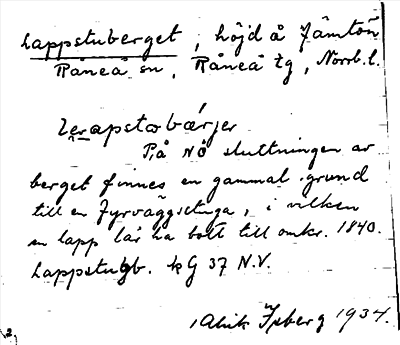 Lappstuberget, höjd å Jämtön
Råneå sn, Råneå tg, Norrb. l.
På NO sluttningen av
berget finnes en gammal grund
till en fyrväggsstuga, i vilken
en lapp lär ha bott till omkr. 1840.
Lappstugb. kG 37 N.V.
Isberg 1934.